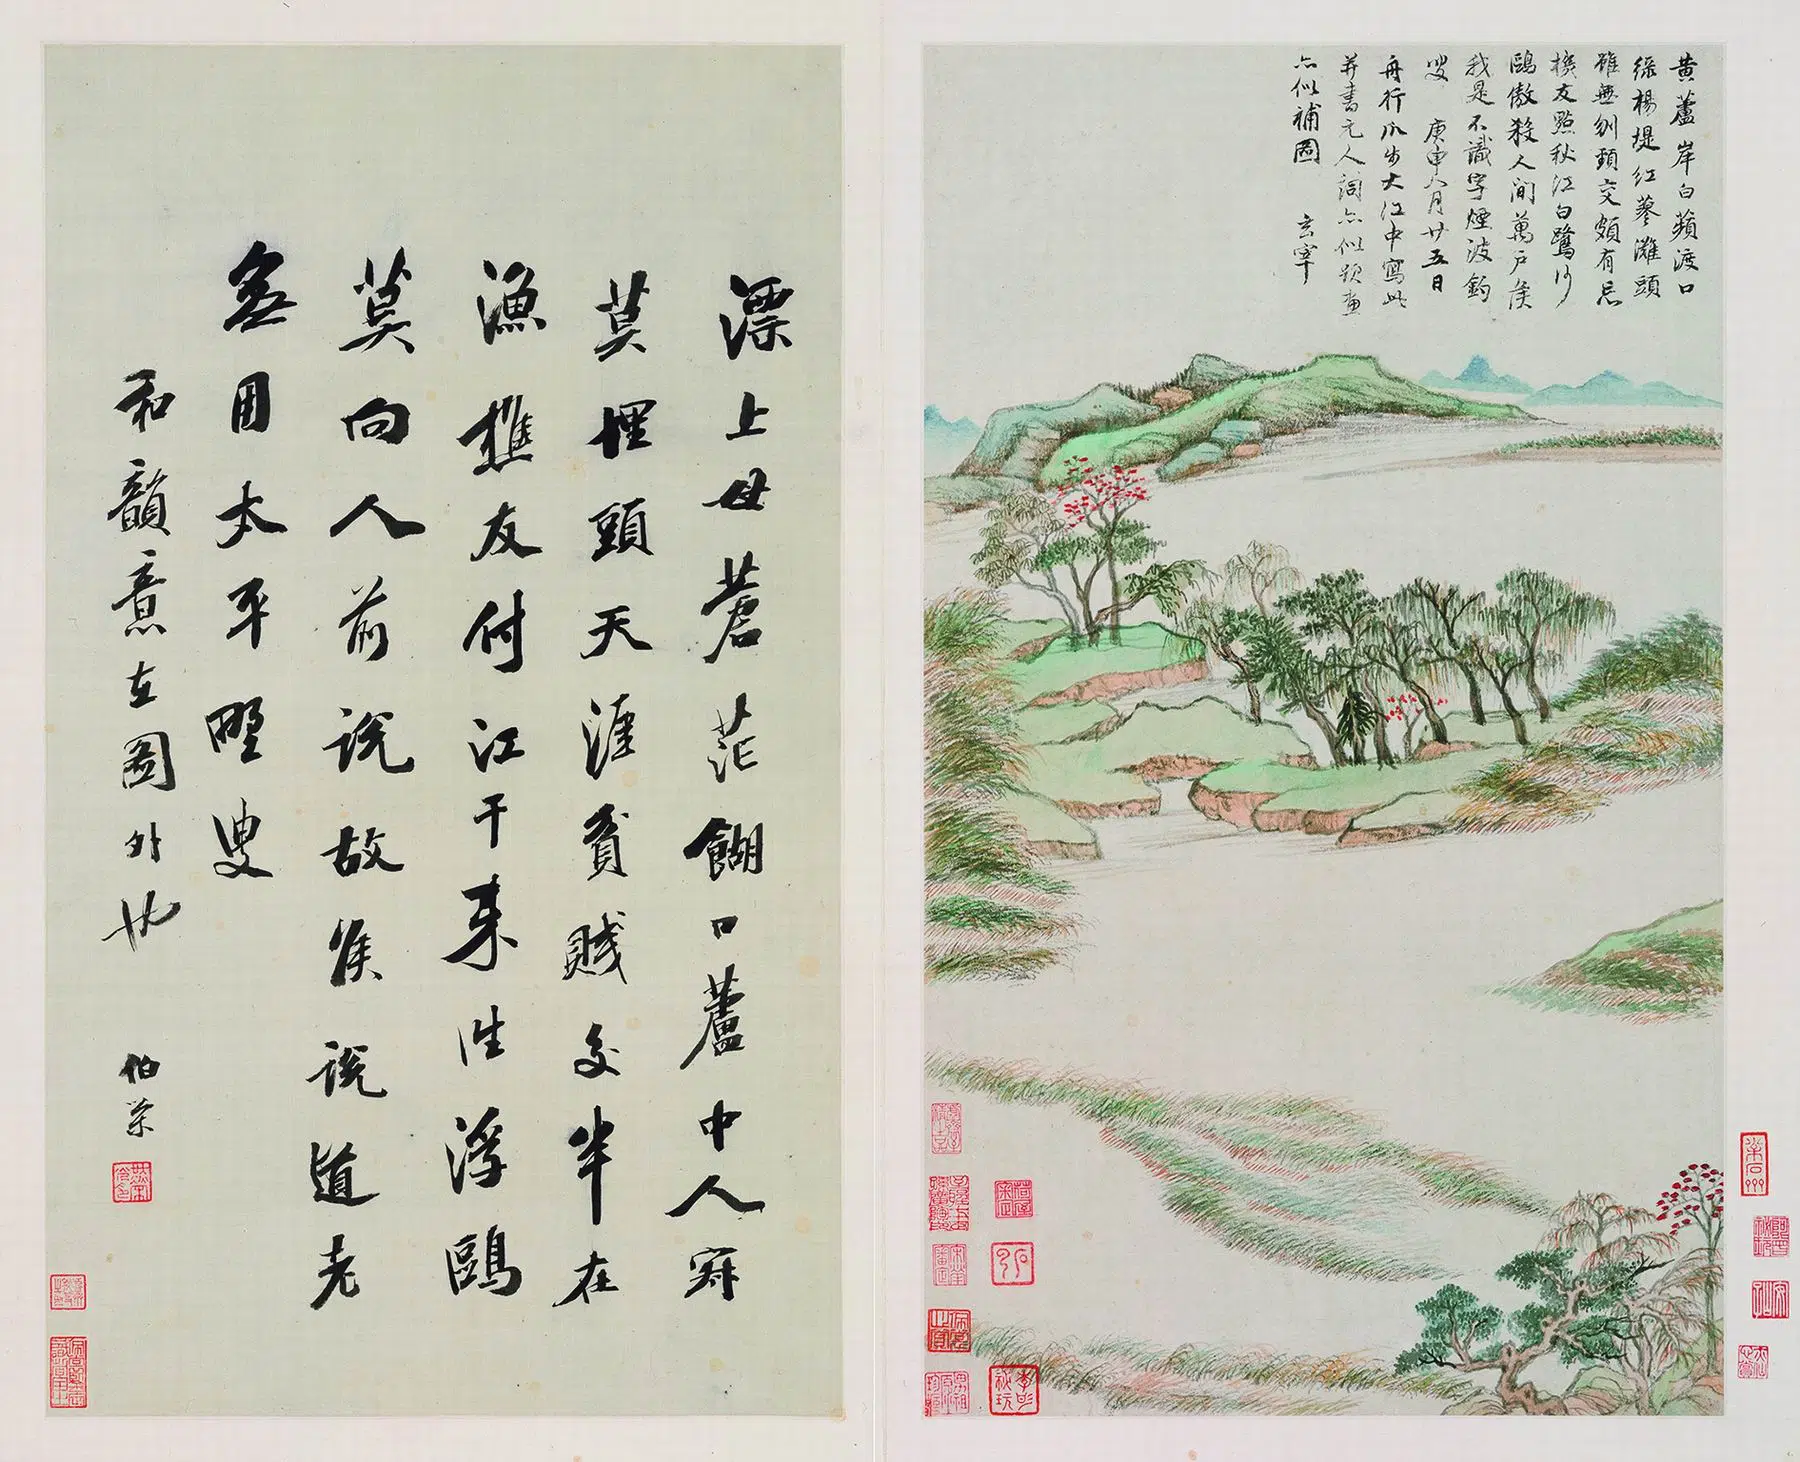 黄蘆岸白蘋渡口
綠楊堤紅蓼灘頭
雖無刎頸交頗有忘
機友點秋江白鷺沙
鷗傲殺人間萬戶侯
我是不識字煙波釣
叟 庚申八月廿五日
舟行瓜步大江中寫此
并書元人詞亦似題畫
亦似補圖 玄宰
漂上母蒼茫餬口蘆中人寂
莫埋頭天涯貧賤交半在
漁樵友付江干来往浮鷗
莫向人前說故侯說道老
無用太平野叟
和韻意在圖外也 伯榮